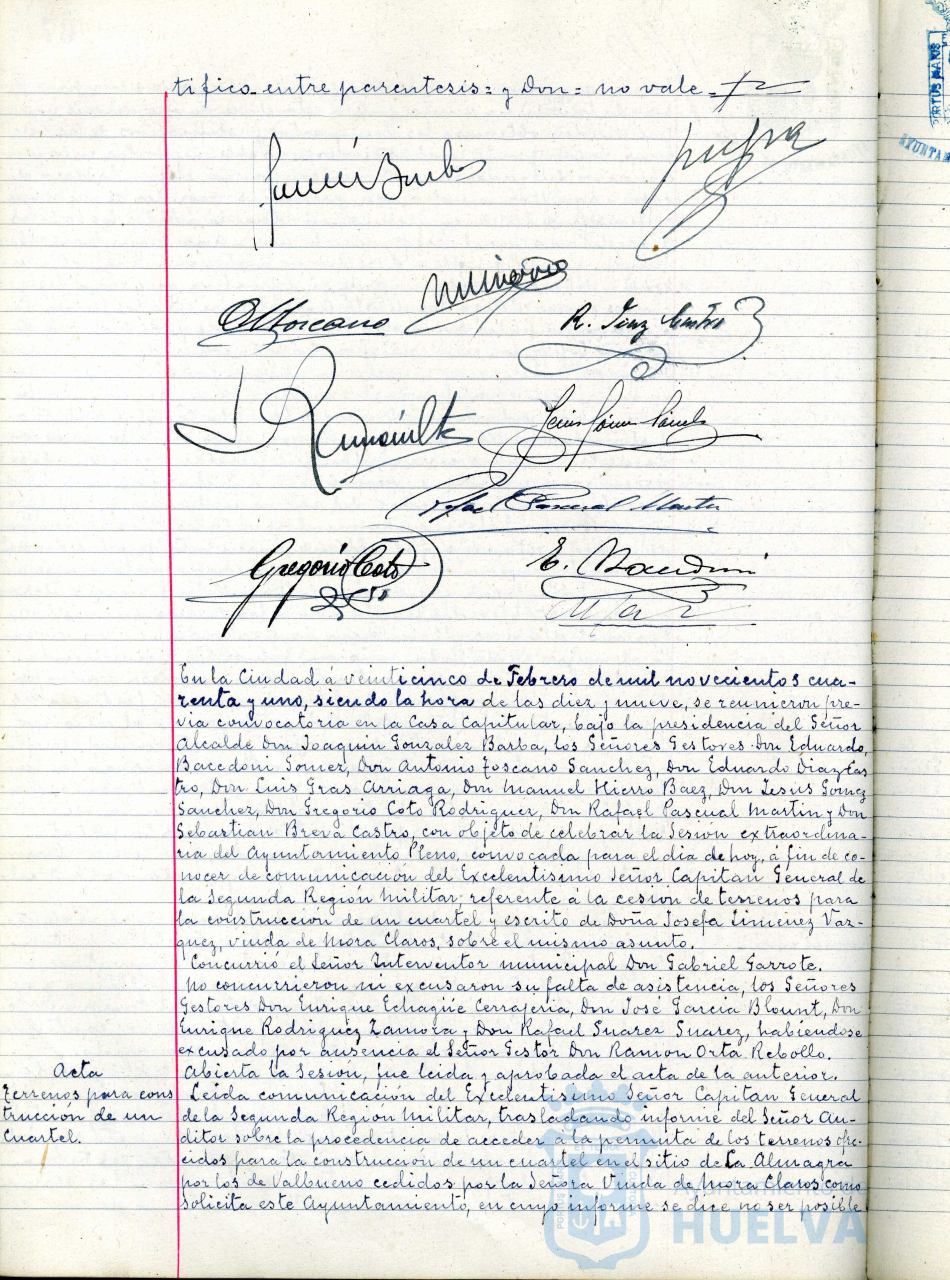 tifico entre parentesis= y Don= no vale=
OToscano
R. Diaz Castro
Jesús Gómez Sánchez
Rafael Pascual Martin
Gregorio Coto
E. Bacedoni
En la Ciudad á veinticinco de Febrero de mil novecientos cua-
renta y uno, siendo la hora de las diez y nueve, se reunieron pre-
via convocatoria en la Casa Capitular, bajo la presidencia del Señor
Alcalde Don Joaquin Gonzalez Barba, los Señores Gestores Don Eduardo
Bacedoni Gomez, Don Antonio Toscano Sanchez, Don Eduardo Diaz Cas
tro, Don Luis Gras Arriaga, Don Manuel Hierro Baez, Don Jesus Gomez
Sanchez, Don Gregorio Coto Rodriguez, Don Rafael Pascual Martin y Don
Sebastian Breva Castro, con objeto de celebrar la Sesion extraordina-
ria del Ayuntamiento Pleno, convocada para el dia de hoy, á fin de co-
nocer de comunicación del Excelentisimo Señor Capitan General de
la Segunda Región Militar, referente á la cesion de terrenos para
la construcción de un cuartel y escrito de Doña Josefa Jimenez Vaz-
quez, viuda de Mora Claros, sobre el mismo asunto.
Concurrió el Señor Interventor municipal Don Gabriel Garrote.
No concurrieron ni excusaron su falta de asistencia, los Señores
Gestores Don Enrique Echagüe Cerrajeria, Don José Garcia Blount, Don
Enrique Rodriguez Zamora y Don Rafael Suarez Suarez, habiéndose
excusado por ausencia el Señor Gestor Don Ramon Orta Rebollo.
Abierta la Sesion, fue leida y aprobada el acta de la anterior.
Acta
Terrenos para cons
trucción de un
Cuartel.
Leida comunicación del Excelentisimo Señor Capitan General
de la Segunda Región Militar, trasladando informe del Señor Au-
ditor sobre la procedencia de acceder á la permuta de los terrenos ofre-
cidos para la construcción de un cuartel en el sitio de La Almagra
por los de Valbueno cedidos por la Señora Viuda de Mora Claros como
solicita este Ayuntamiento, en cuyo informe se dice no ser posible
Ayuntamiento de
HUELVA